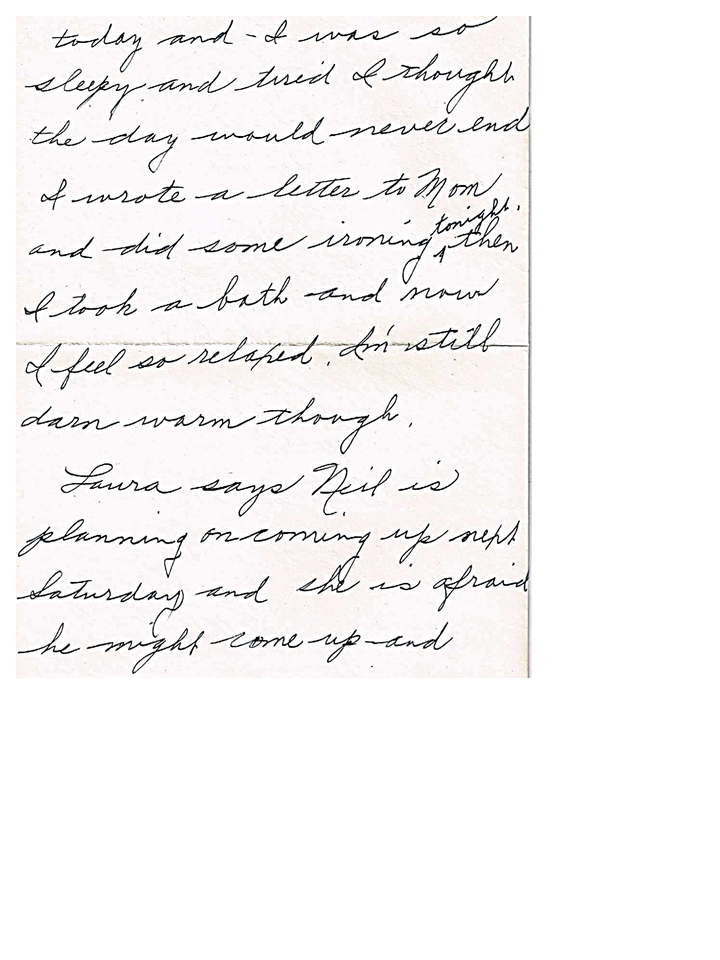 today and - I was so
sleepy and tired I thought
the day would never end
I wrote a letter to Mom
and did some ironing tonight. then
I took a bath and now
I feel so relaxed. I'm still
darn warm though.
Laura says Neil is
planning on coming up next
Saturday and she is afraid
he might come up and